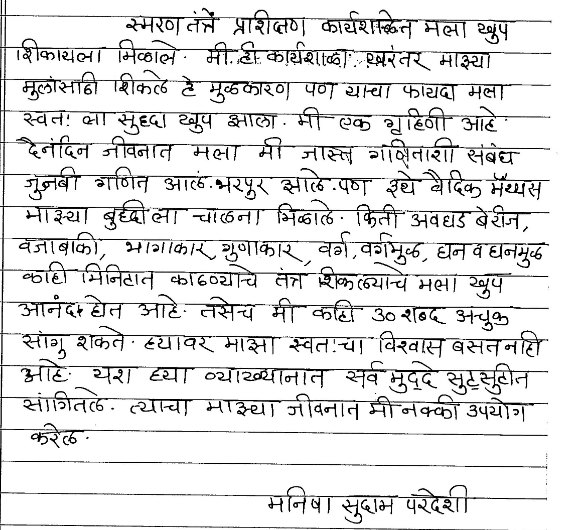 स्मरण तंत्रे प्राशिक्षण कार्यशाळेत मला खुप
शिकायला मिळाले. मी ही कार्यशाळा खरंतर माझ्या
मुलांसाठी शिकले हे मुळकारण पण याचा फायदा मला
स्वतः ला सुध्दा खुप झाला. मी एक गृहिणी आहे.
दैनंदिन जीवनात मला मी जास्त गणिताशी संबंध
गणित आलं. भरपुर झाले. पण इथे वैदिक मॅथ्यस
माझ्या बुध्दीला चालना मिळाले. किती अवघड बेरीज,
वजाबाकी, भागाकार, गुणाकार, वर्ग, वर्गमुळ, घन व घनमुळ
काही मिनिटात काढण्याचे तंत्र शिकल्याचे मला खुप
आनंद होत आहे. तसेच मी काही ३० शब्द अचुक
सांगु शकते. ह्यावर माझा स्वतःचा विश्वास बसत नाही
आहे. यश ह्या व्याख्यानात सर्व मुद्दे सुटसुटीत
सांगितले. त्याचा माझ्या जीवनात मी नक्की उपयोग
करेल.
मनिषा सुदाम परदेशी